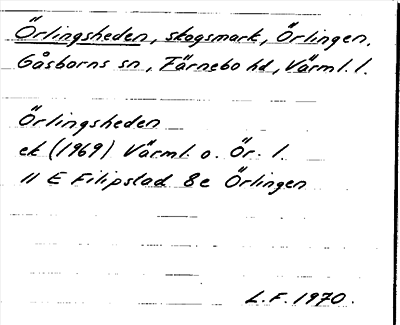 Örlingsheden, skogsmark, Örlingen,
Gåsborns sn, Färnebo hd, Värml. l.
Örlingsheden
ek (1969) Värml. o. Ör. l.
11 E Filipstad 8e Örlingen
L.F. 1970.